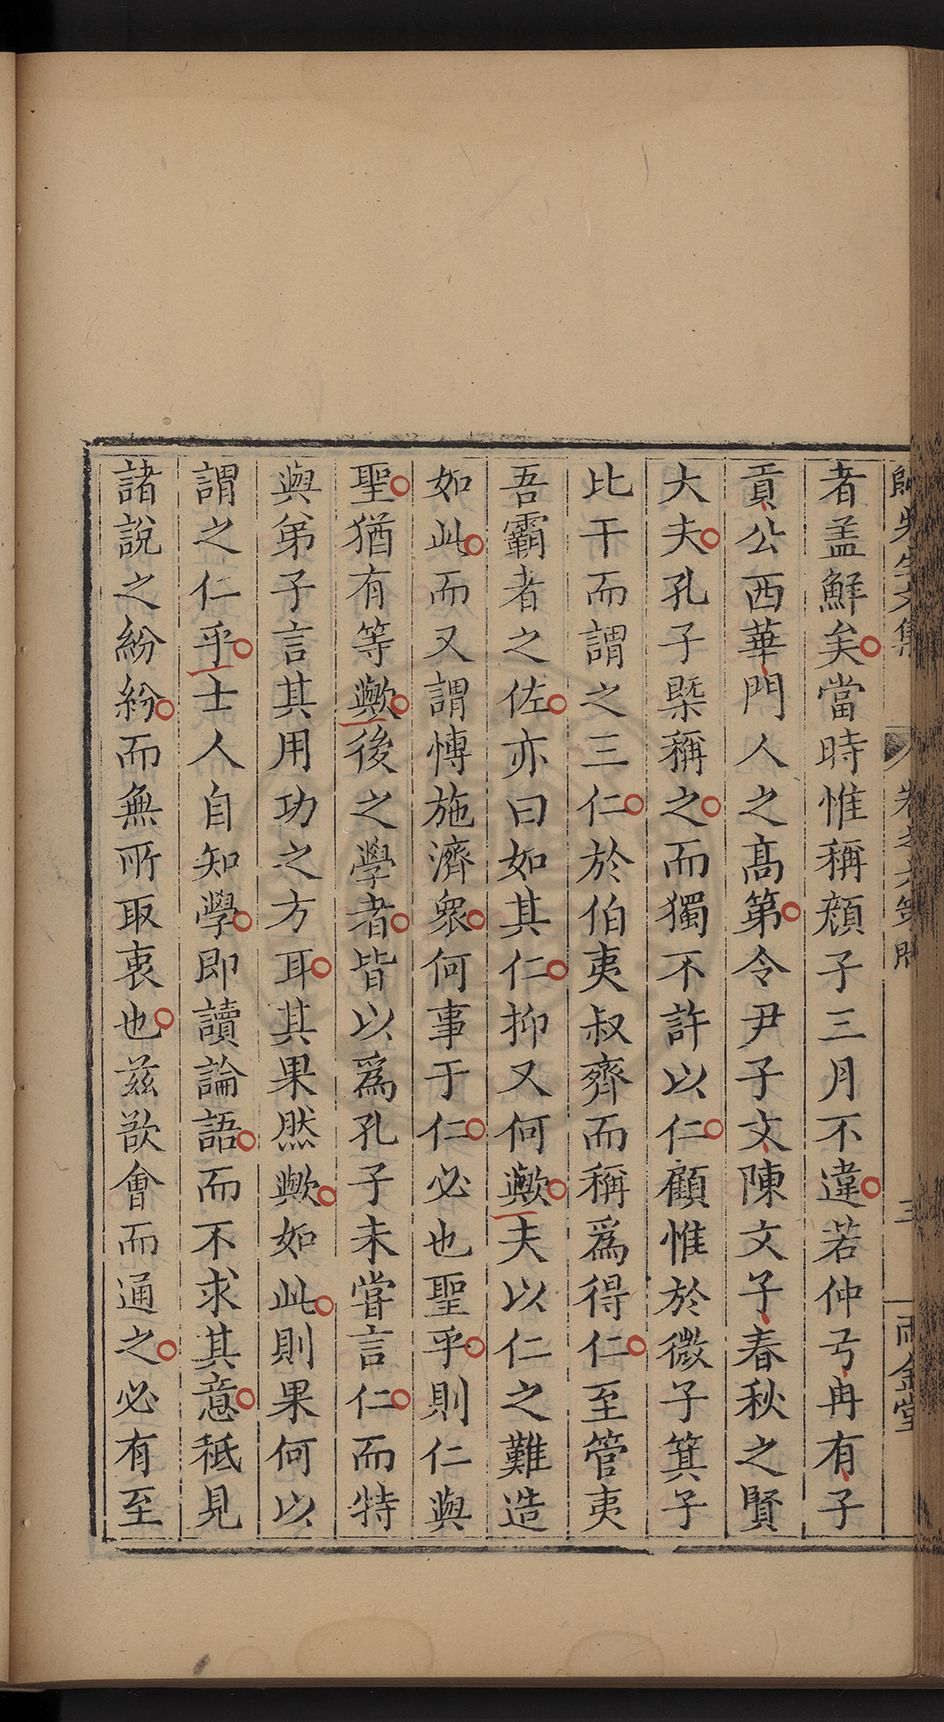 者盖鮮矣當時惟稱顔子三月不違若仲弓冉有子
貢公西華門人之髙第令尹子文陳文子春秋之賢
大夫孔子槩稱之而獨不許以仁顧惟於微子箕子
比干而謂之三仁於伯夷叔齊而稱爲得仁至管夷
吾霸者之佐亦曰如其仁抑又何歟夫以仁之難造
如此而又謂慱施濟衆何事于仁必也聖乎則仁與
聖猶有等歟後之學者皆以爲孔子未嘗言仁而特
與弟子言其用功之方耳其果然歟如此則果何以
謂之仁乎士人自知學即讀論語而不求其意秪見
諸說之紛紛而無所取衷也兹欲會而通之必有至
先生文集
卷之六
三
雨金堂